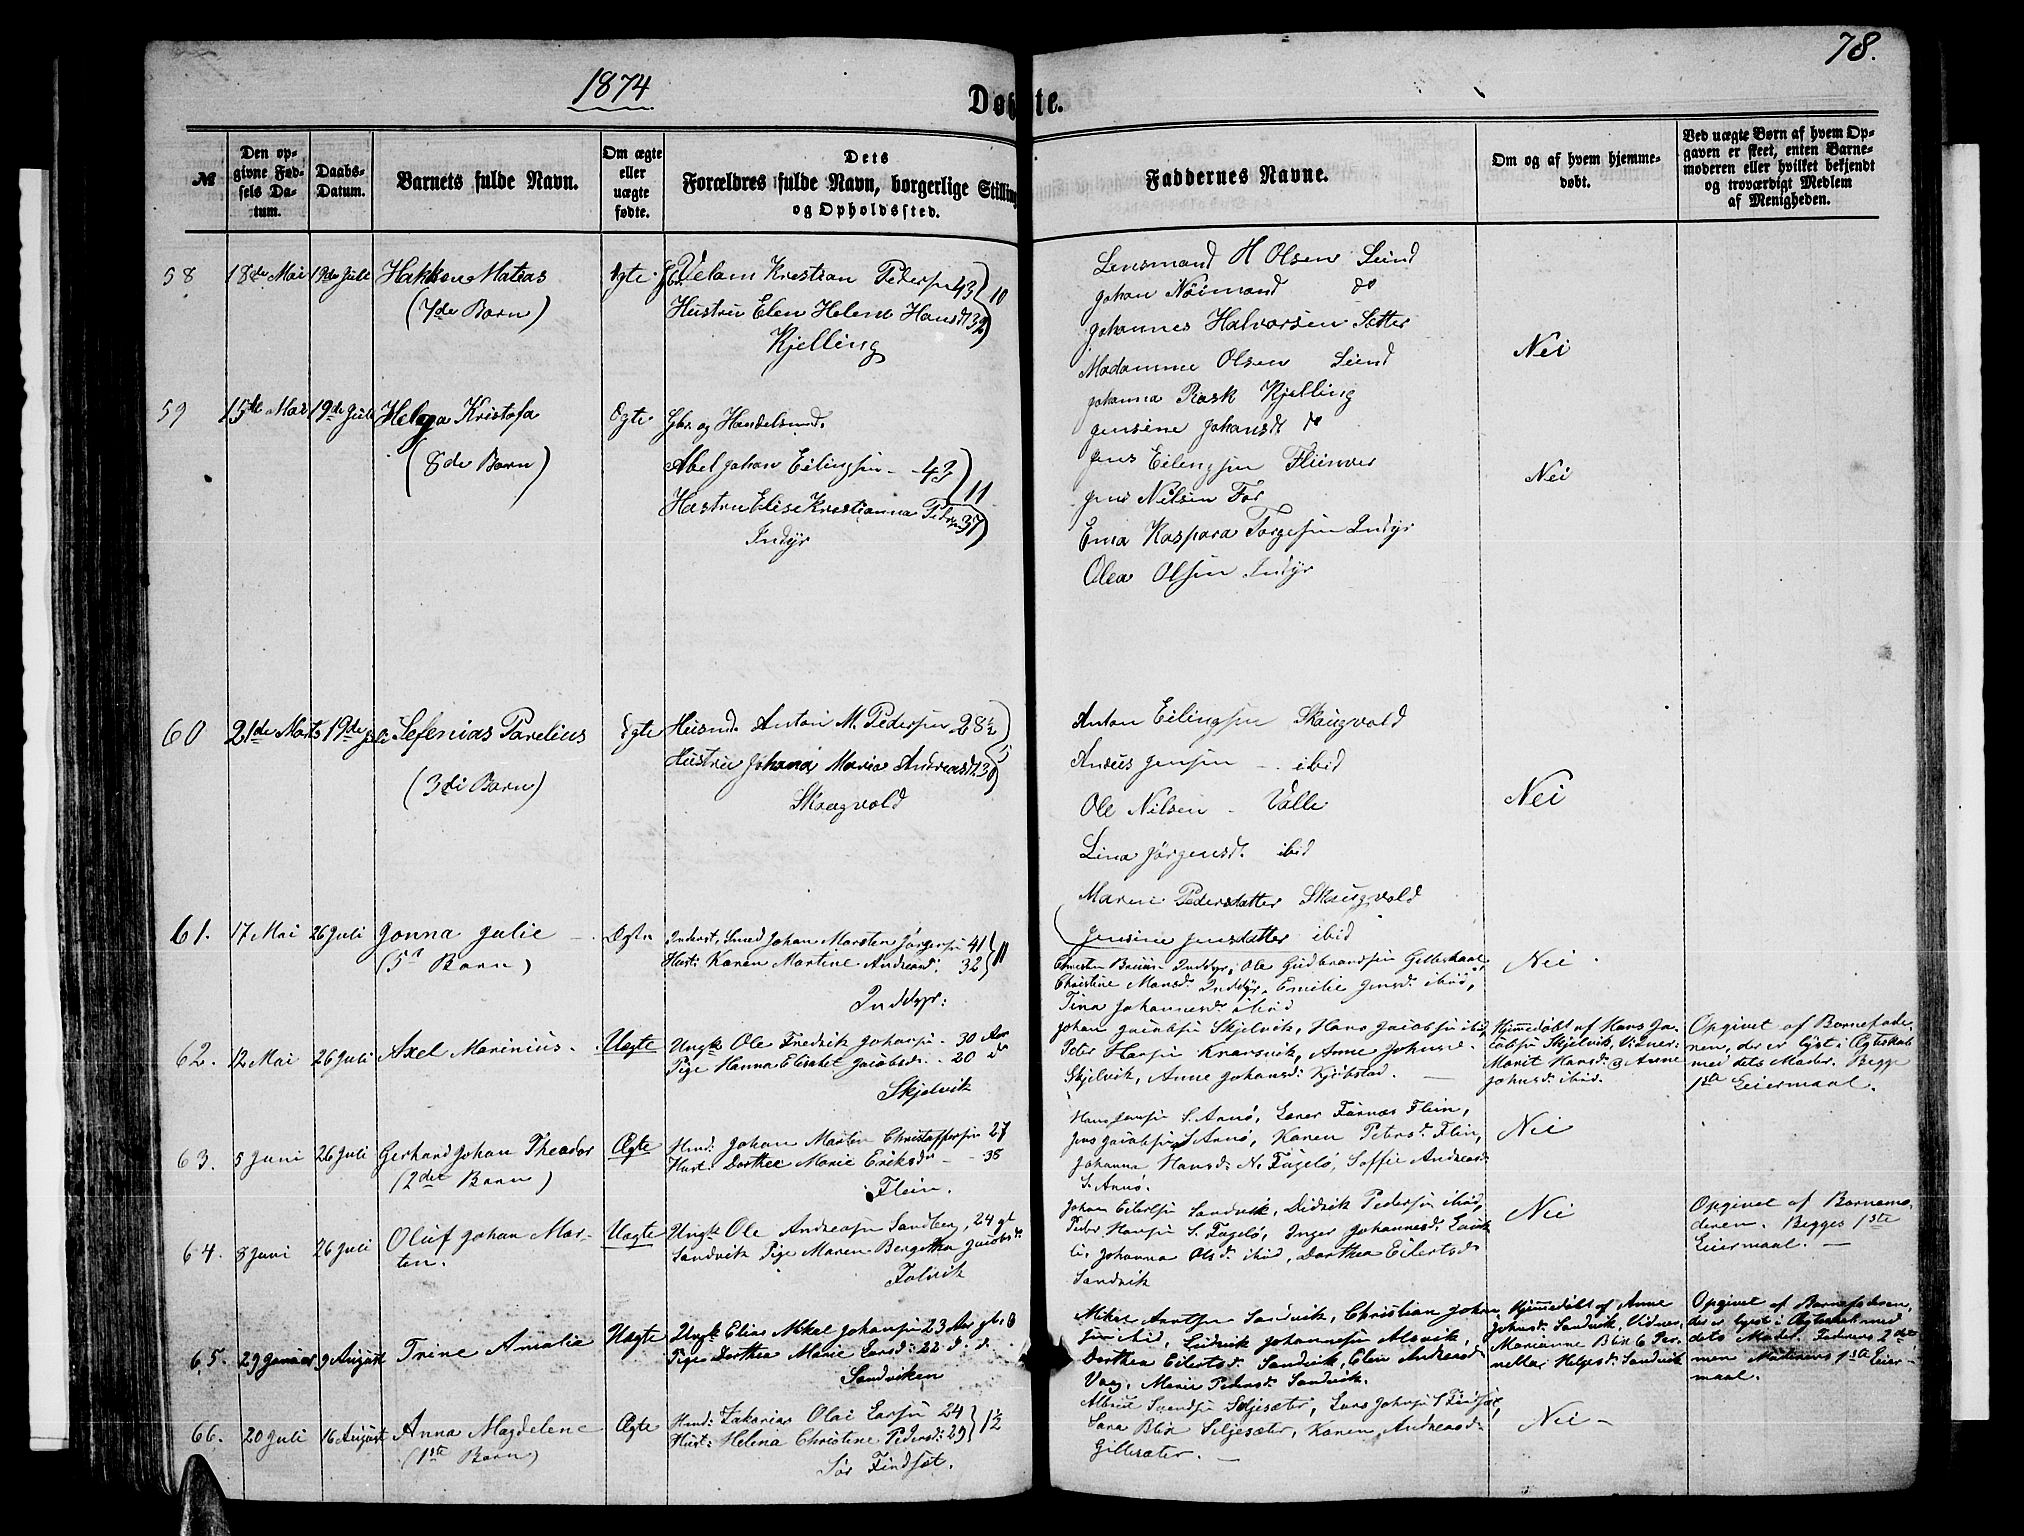 78.
1874
Døbte.
№
Den op-
givne Fød-
sels Da-
tum.
Daabs-
Datum.
Barnets fulde Navn.
Om ægte
eller
uægte
fødte.
Dets
Forældres fulde Navn, borgerlige Stilling
og Opholdssted.
Faddernes Navne.
Om og af hvem hjemme-
døbt.
Ved uægte Børn af hvem Op-
gaven er skeet, enten Barne-
moderen eller hvilket bekjendt
og troværdigt Medlem
af Menigheden.
58 18de Mai 19de Juli Hakken Matias Ægte
(7de Barn)
Kristian Pedersen 43 10
Hustru Elen Helene Hansdt 32
Kjelling
Lensmand H Olsen Lund
Johan Nøimand do
Johannes Halvorsen Sætter
Madamme Olsen Lund
Johanna Rask Kjelling
Jensine Johansdt do
Nei
59 15de Mai 19de Juli Helga Kristofa Ægte
(8de Barn)
Gbr. og Handelsmd.
Abel Johan Eilingsen - 43 11
Hustru Elise Kristianna Peders 37
Indyr
Jens Eilingsen Fleinvær
Jens Nilsen For
Erna Kaspara Torgesen Indyr
Olea Olsen Indyr
Nei
60 21de Marts 19de Juli Sefenias Parelius Ægte
(3di Barn)
Husmd. Anton M. Pedersen 28½ 5
Hustru Johana Maria Andreasdt 30
Skaugvold
Anton Eilingsen Skaugvold
Anders Jensen - ibid
Ole Nilsen - Valle
Lina Jørgensdt. ibid
Maren Pedersdatter Skaugvold
Jensine Jensdatter ibid
Nei
61. 17 Mai 26 Juli Jonna Julie - Ægte
(5te Barn)
Inderst, Smed Johan Morten Jørgensen 41 11
Hust: Karen Martine Andreasd. 32
Inddyr:
Christen Bruun Inddyr, Ole Gudbrandsen Gilleskaal,
Christine Monsd. Inddyr, Emilie Jensd. ibid,
Tina Johannesdr ibid
Nei -
62. 12 Mai 26 Juli Axel Marinius - Uægte
Ungk Ole Fredrik Johansen - 30 Aar
Pige Hanna Elisabet Jacobsd. - 20 do
Skjelvik
Johan Jacobsen Skjelvik, Hans Jacobsen ibid,
Peter Hansen Knarsvik, Anne Johnsd.
Skjelvik, Anne Johansd: Kjøbstad. -
Hjemmedøbt af Hans Ja-
cobsen Skjelvik, Vidner:
Marit Hansd: & Anne
Johnsd. ibid.
Opgivet af Barnefade-
ren, der er lyst i Ægteskab
med dets Moder. Begge
1ste Leiermaal.
63. 5 Juni 26 Juli Gerhard Johan Theodor Ægte
(2det Barn)
Hmd: Johan Morten Christoffersen 27
Hust: Dorthea Marie Eriksdr - 38
Flein.
Hans Jensen S. Arnø, Lorer Fornæs Flein,
Jens Jacobsen S. Arnø, Karen Petersd. Flein,
Johanna Hansd: N. Fugelø, Soffie Andreasd:
S. Arnø.
Nei
64. 8 Juni 26 Juli Oluf Johan Mor- Uægte
ten.
Ungk Ole Andreasen Sandberg, 24 gl
Sandvik Pige Maren Bergitha Jacobsd:
Johan Eilertsen Sandvik, Didrik Pedersen ibid,
Peder Hansen S. Fugelø, Inger Johannesd.
Johanna Olsd. ibid, Dorthea Eilertsd:
Sandvik
Nei
Opgivet af Barnemo-
deren. Begges 1ste
Leiermaal. -
65. 29 Januar 9 August Trine Amalia Uægte
Ungk Elias Mikal Johansen 23 Aar gl.
Pige Dorthea Marie Larsd: 22 d. d.
Sandviken
Mikal Arntsen Sandvik, Christian Johan-
sen ibid, Ludvik Johannesen Alsvik,
Dorthea Eilertsd. Sandvik, Elen Andreasd:
Vaag, Marie Pedersd: Sandvik.
Hjemmedøbt af Anne
Johnsd: Sandvik, Vidner
Marianne Blix & Per-
nella Helgesd: Sandvik
Opgivet af Barnefaderen,
der er lyst i Ægteskab med
dets Moder. Faderens 2det
men Moderens 1ste Leier-
maal.
66. 20 Juli 16 August Anna Magdelene Ægte
(1ste Barn)
Hmd: Zakarias Olai Larsen 24 1½
Hust: Helena Christine Pedersd: 29
Sør Findset.
Albert Svendsen Seljesæter, Lars Johnsen S Findset,
Sara Blix Seljesæter, Karen Andreasd:
Gillesæter. -
Nei -